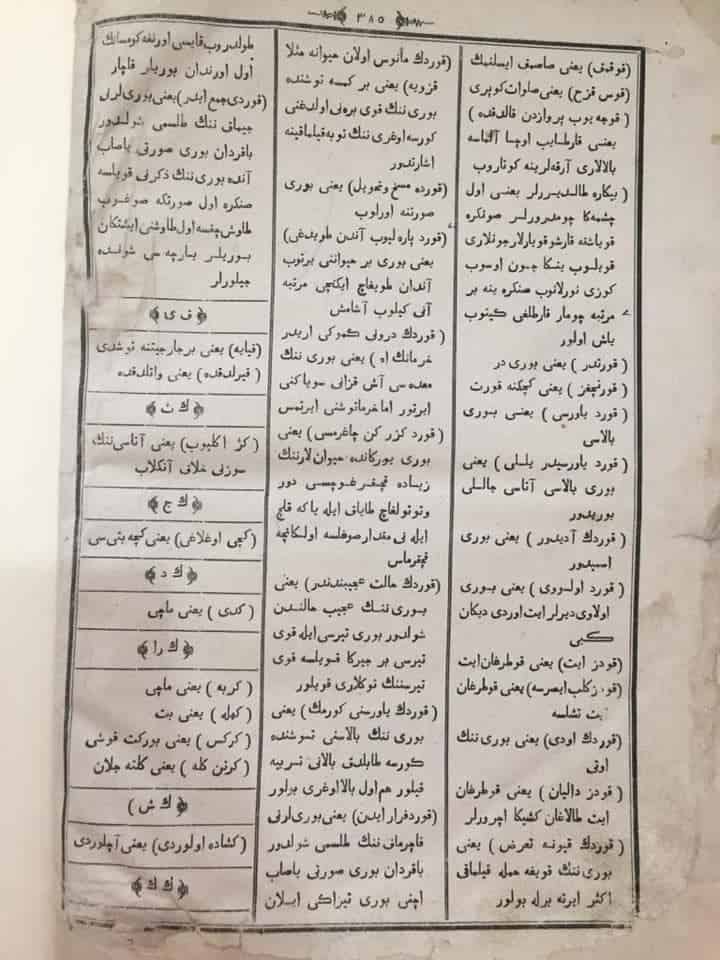 ﴿ ٣٨٥ ﴾
(قوقمق) یعنی صاصمق ایسلنمك
(قوس قزح) یعنی صلوات كوپری
( قوجه یوب پروازدن قالدقده )
یعنی قارطایب اوچا آلماسه
بالالاری آرقه‌لرینه كوتاروب
( بیكاره طالدیررلر یعنی اول
چشمه‌كا چومدرورلر صونكره
قویاشنه قارشو قویارلار جونلاری
قویلوب ینكا جون اوسوب
كوزی نورلانوب صنكره ینه بر
مرتبه چومار قارطلغی كیتوب
یاش اولور
( قورتدر ) یعنی بوری در
( قورتچغز ) یعنی كچكنه قورت
( قورد یاورسی ) یعنی بوری
بالاسی
( قورد یاورسیدر یللی ) یعنی
بوری بالاسی آتاسی جاللی
بوریدور
( قوردك آدیدور ) یعنی بوری
اسمیدور
( قورد اولسووی ) یعنی بوری
اولاوی دیرلر ایت اوردی دیكان
كبی
(قودز ایت) یعنی قوطرغان ایت
(قودز كلب ایصرسه) یعنی قوطرغان
ایت تشلاسه
(قوردك اودی) یعنی بوری ننك
اوتی
( قودز دالیان ) یعنی قوطرغان
ایت طالاغان كشیكا اچرورلر
( قوردك قیونه تعرض ) یعنی
بوری ننك قویغه حمله قیلماقی
اكثر ایرته برله بولور
(قوردك مأنوس اولان حیوانه مثلا
قزویه) یعنی بر كمسه توشنده
بوری ننك قوی برەنی اولدغنی
كورسه اوغری ننك توبه قیلماقینه
اشارتدور
(قورده مسخ وتحویل) یعنی بوری
صورتنه اورلوب
(قورد پاره لیوب آندن طویدغی)
یعنی بوری بر حیواننی یرتوب
آندان طویغاچ ایكنچی مرتبه
آنی كیلوب آشامش
( قوردك درونی كموكی اریدر
خرمانك اه ) یعنی بوری ننك
معده سی آش قزانی سویاكنی
ایرتور اما خرما توشنی ایرتمس
( قورد كزر كن چاغرمسی ) یعنی
بوری یوركانده حیوان لارننك
زیاده قچقرغوچسی دور
وتوتولغاچ طایاق ایله یا كه قلچ
ایله نی مقدار صوغلسه اولكانچه
قچقرماس
(قوردك حالت عجیبندندر) یعنی
بوری ننك عجیب حالندن
شولدور بوری تیرسی ایله قوی
تیرسی بر جیركا قویلسه قوی
تیرسننك توكلاری قویلور
( قوردك یاورسنی كورمك ) یعنی
بوری ننك بالاسنی تسوشنده
كورسه طابلدق بالانی تسربیه
قیلور هم اول بالا اوغری بولور
(قوردفرار ایدن) یعنی بوری لرنی
قاچرمانی ننك طلسمی شولدور
باقردان بوری صورتی یاصاب
اچنی بوری تیزاكی ایلان
طولدروب قایسی اورنغه كومسانك
اول اورندان بوریلر قاچار
(قوردی جمع ایدر) یعنی بوری لرنی
جیماقی ننك طلسمی شولدور
باقردان بوری صورتی یاصاب
آنده بوری ننك ذكرنی قویلسه
صنكره اول صورتكه صوغوب
طاوش چقسه اول طاوشنی ایشتكان
بوریلر بارچه سی شونده
جیلورلر
﴿ ق ی ﴾
(قیایه) یعنی بر جار جیتنه توشدی
( قیرلدقده ) یعنی واتلدقده
﴿ ك ث ﴾
( كژ اكلیوب) یعنی آتاسی ننك
سوزنی خلافی آنكلاب
﴿ ك ج ﴾
(كچی اوغلاغی) یعنی كچه بتی سی
﴿ ك د ﴾
( كدی ) یعنی ماچی
﴿ ك را ﴾
( كربه ) یعنی ماچی
( كهله ) یعنی بت
( كركس ) یعنی بوركت قوشی
( كرتن كله ) یعنی كلته جلان
﴿ ك ش ﴾
(كشاده اولوردی) یعنی آچلوردی
﴿ ك ك ﴾